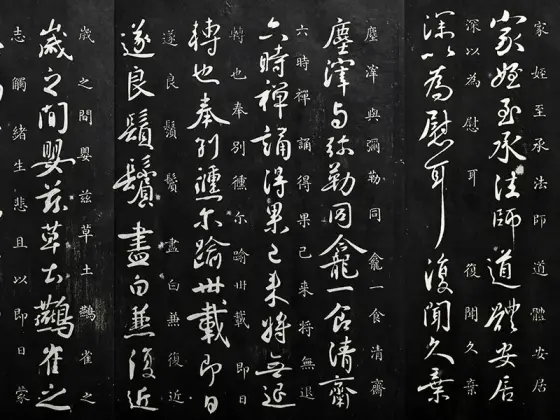 家姪至承法師道體安居
家姪至承法師道體安居
深以為慰耳復聞久棄
深以為慰耳復聞久棄
塵滓與彌勒同龕一食清齋
塵滓与弥勒同龕一食清齋
六時禪誦得果已来將無退
六時禪誦得果已来將無退
轉也奉別儵尔踰卅載即日
轉也奉別儵尔踰卅載即日
遂良鬚鬢盡白兼復近
遂良鬚鬢盡白兼復近
歲之間嬰兹草土鷰雀之
歲之間嬰兹草土鷰雀之
志觸緒生悲且以即日蒙